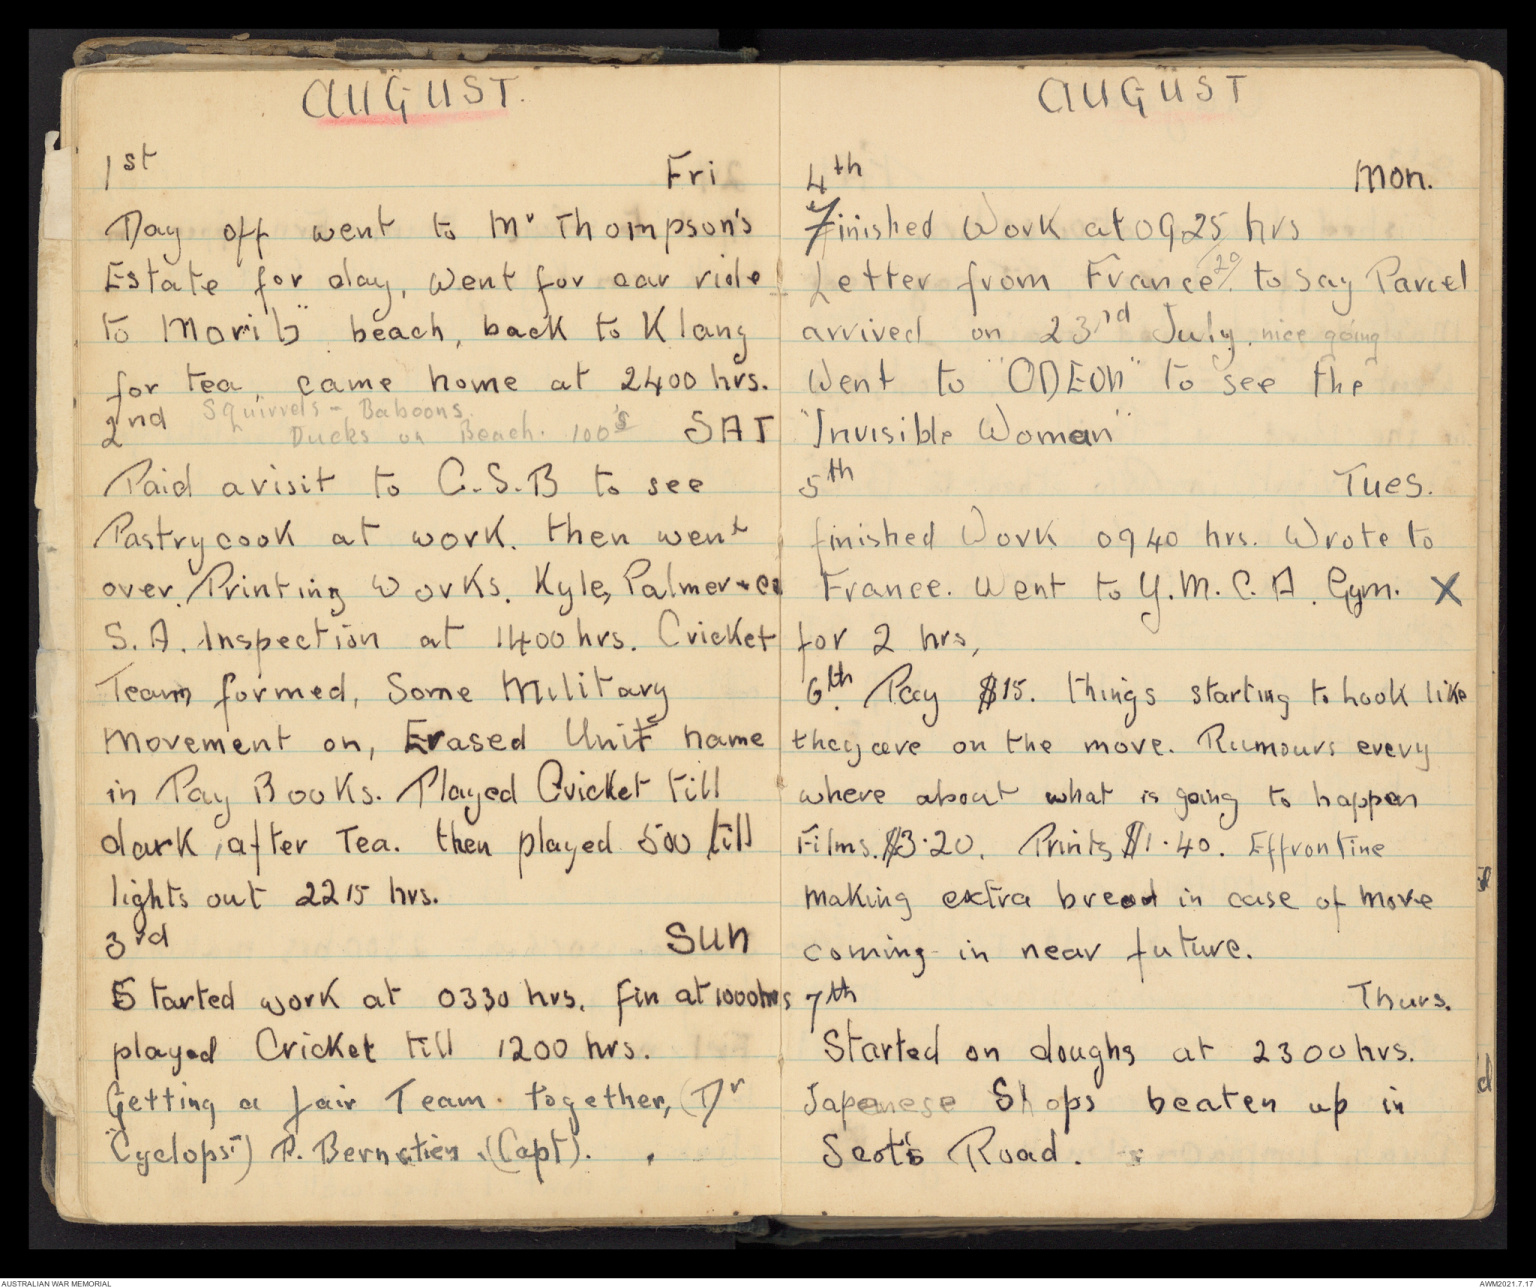 AUGUST.
1st Fri
Day off went to Mr Thompson's
Estate for day, Went for car ride
to "Morib" beach, back to Klang
for tea, came home at 2400 hrs.
Squirrels - Baboons.
2nd Ducks on Beach. 100's SAT
Paid a visit to C.S.B to see
Pastrycook at work. then went
over Printing Works. Kyle, Palmer + Co
S.A. Inspection at 1400 hrs. Cricket
Team formed, Some Military
Movement on, Erased Unit name
in Pay Books. Played Cricket till
dark, after Tea. then played 500 till
lights out 2215 hrs.
3rd SUN
Started work at 0330 hrs. fin at 1000 hrs
played Cricket till 1200 hrs.
Getting a fair Team together, (Dr
"Cyclops") P. (Capt).
AUGUST
4th Mon.
Finished Work at 0925 hrs
Letter from France 29/ to say Parcel
arrived on 23rd July, nice going
Went to "ODEON" to see the
"Invisible Woman"
5th Tues.
finished Work 0940 hrs. Wrote to
France. Went to Y.M.C.A. Gym. X
for 2 hrs,
6th. Pay $15. things starting to hook like
they are on the move. Rumours every
where about what is going to happen
Films. $3.20. Prints $1.40. Effrontine
making extra bread in case of move
coming in near future.
7th Thurs.
Started on doughs at 2300 hrs.
Japenese Shops beaten up in
Scots Road.
AUSTRALIAN WAR MEMORIAL
AWM2021.7.17